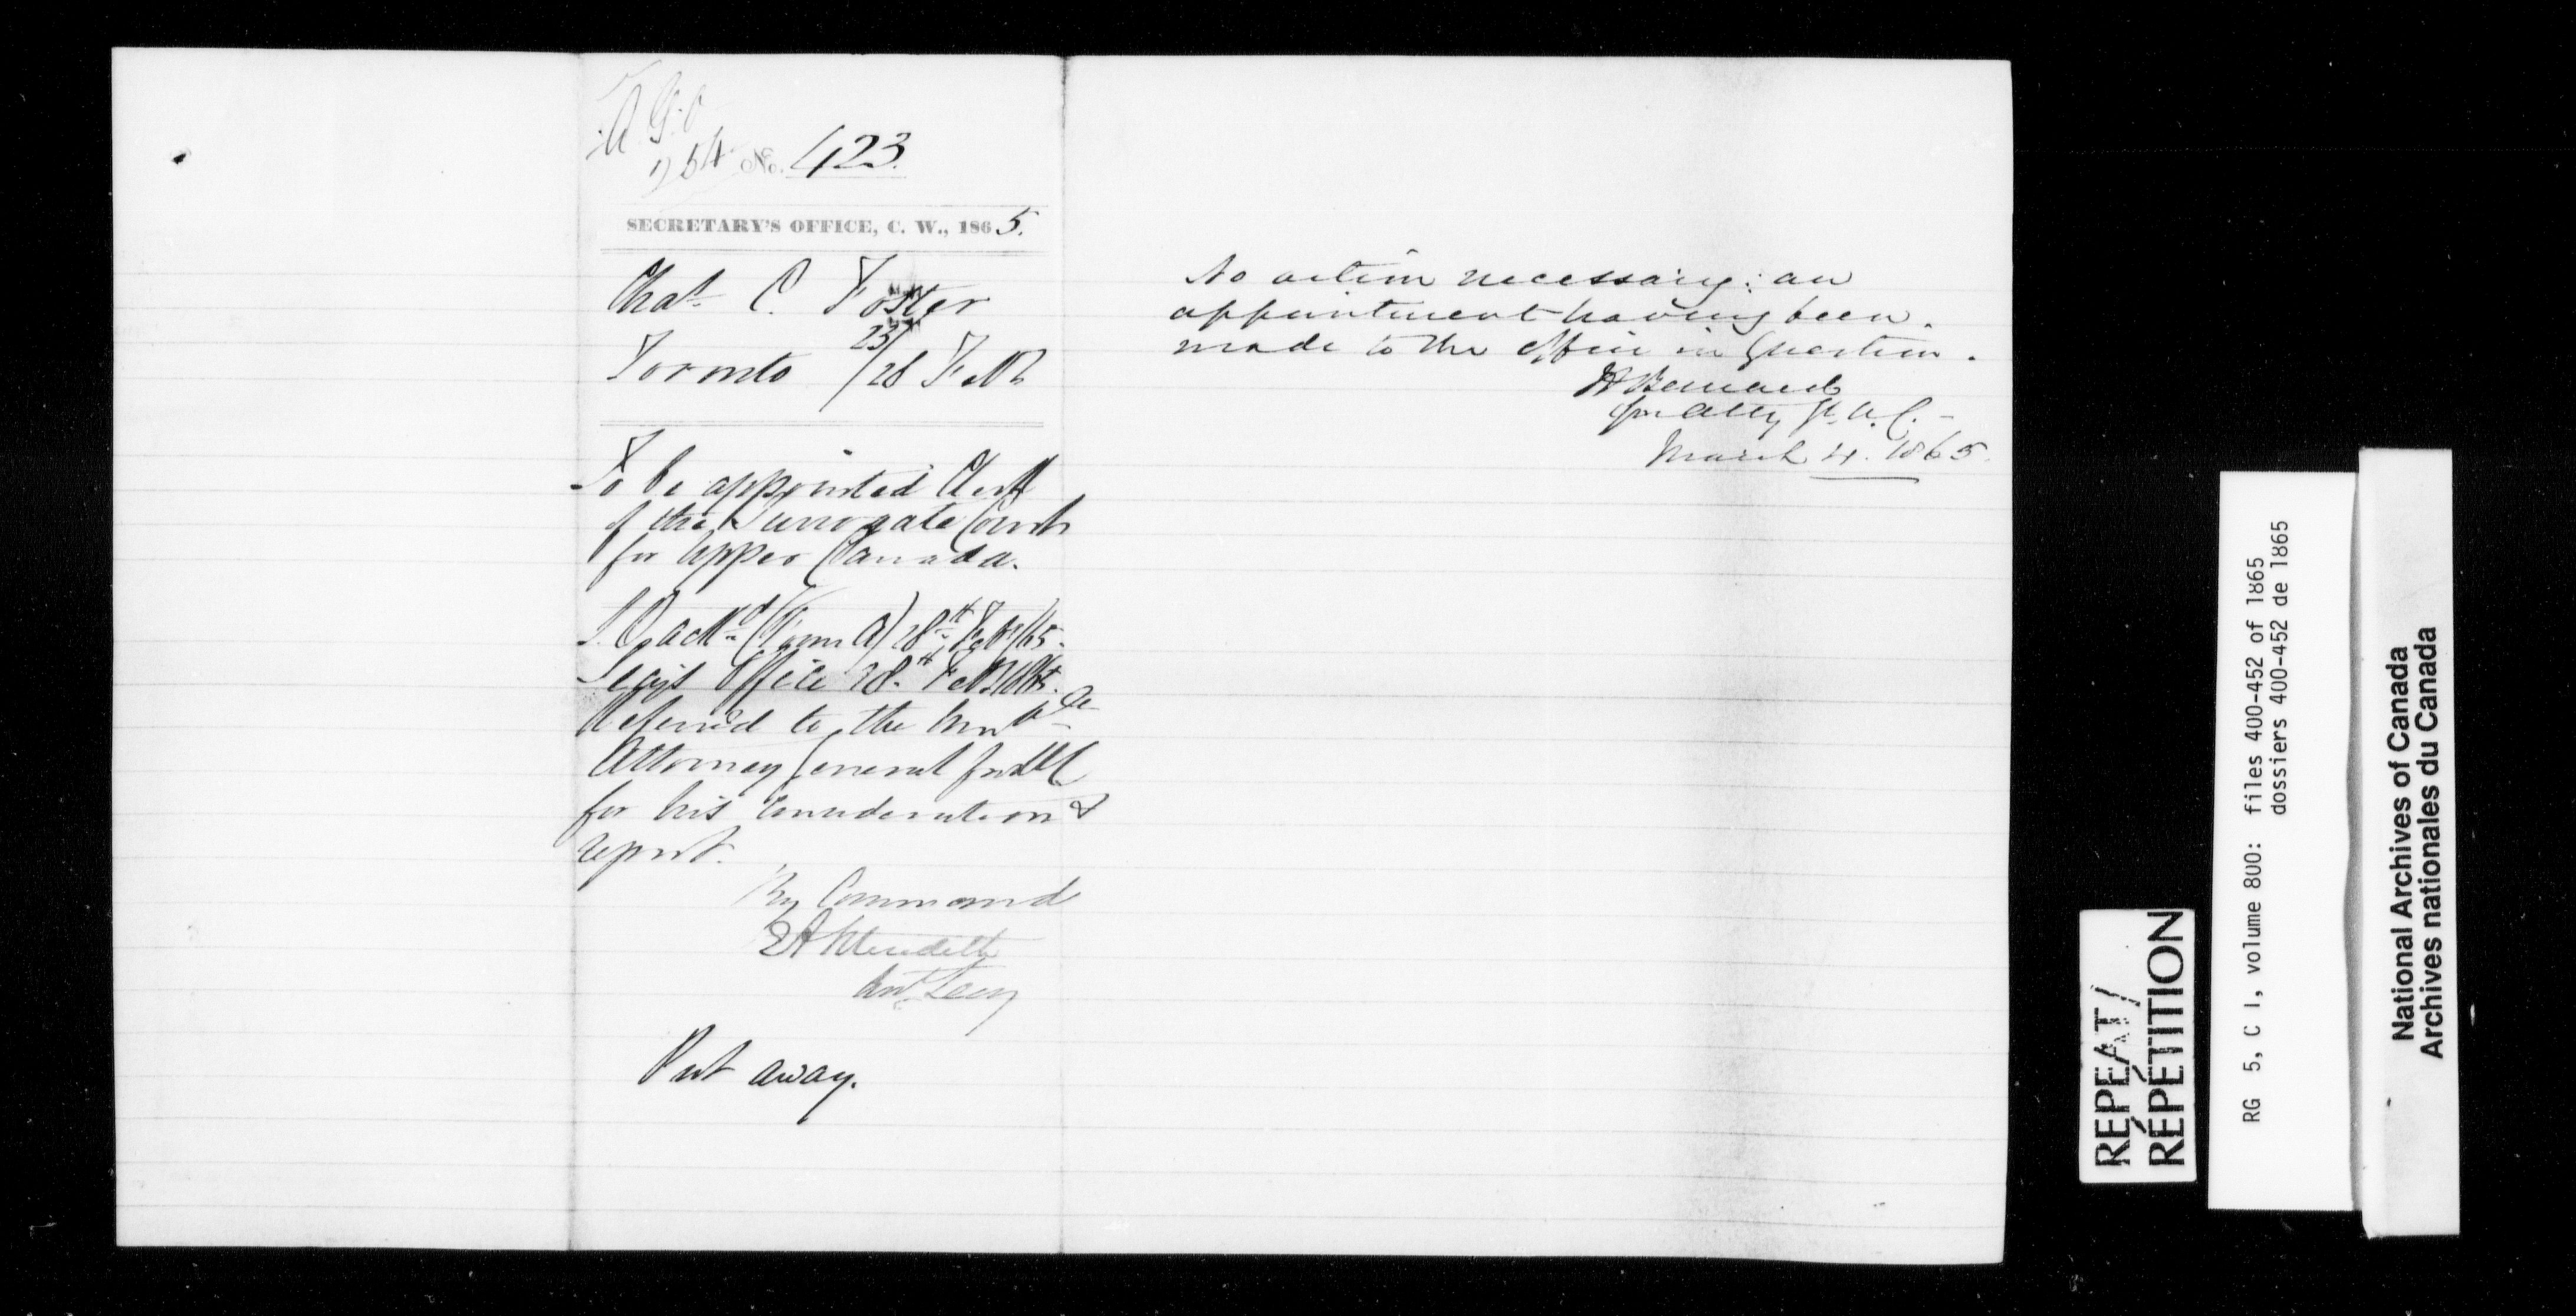 A. G. O
No. 423.
SECRETARY'S OFFICE, C. W., 1865.
Chas. C. Foster
Toronto 23/28 Feb
To be appointed Clerk
of the Surrogate Court
for Upper Canada.
ackd (Form A) 28th Feb /65.
Secy's Office 28th Feb 1865.
Referred to the Honble
Attorney General for UC
for his consideration &
report.
By Command
EA Meredith
Asst Secy
Put away.
No action necessary: an
appointment having been
made to the office in question.
H Bernard
for Atty Gl. U. C. -
March 4. 1865.
REPEAT/
RÉPÉTITION
RG 5, C 1, volume 800: files 400-452 of 1865
dossiers 400-452 de 1865
National Archives of Canada
Archives nationales du Canada